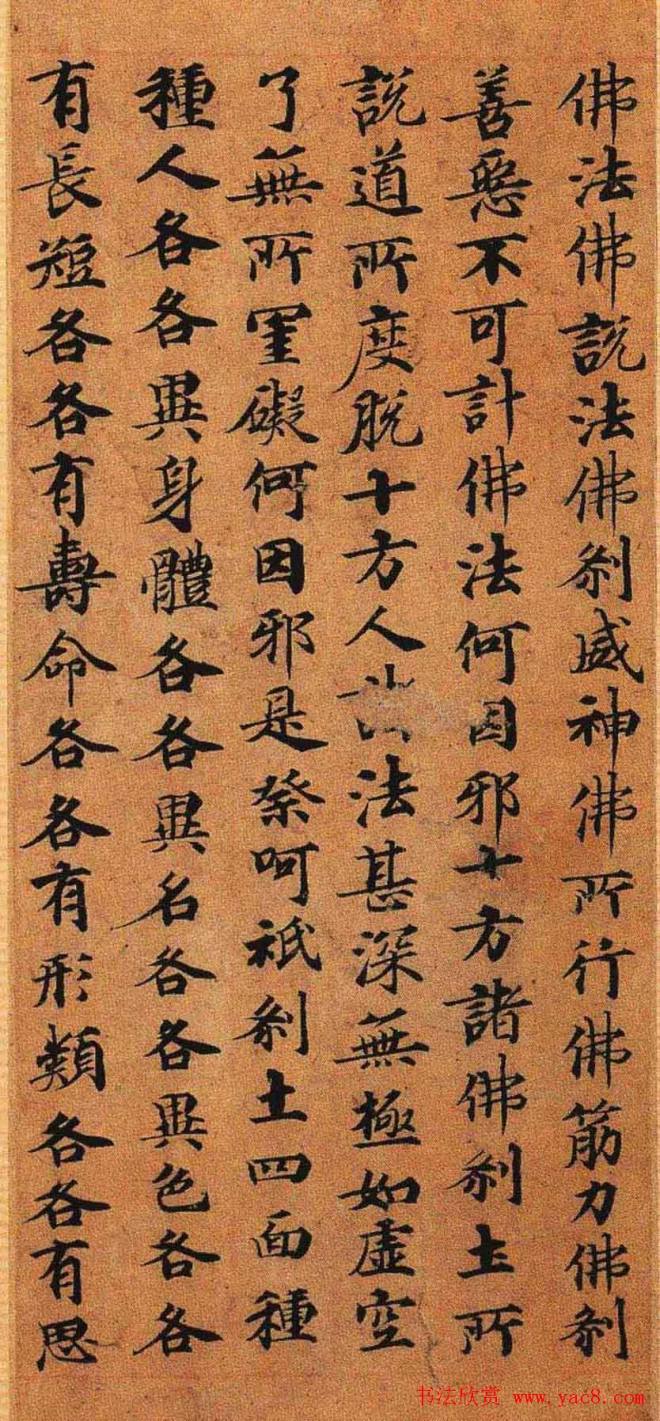 佛法佛說法佛剎威神佛所行佛筋力佛剎
善惡不可計佛法何因邪十方諸佛剎土所
說道所度脫十方人諸法甚深無極如虛空
了無所罣礙何因邪是祭呵祇剎土四面種
種人各各異身體各各異名各各異色各各
有長短各各有壽命各各有形類各各有思
书法欣赏 www.yac8.com